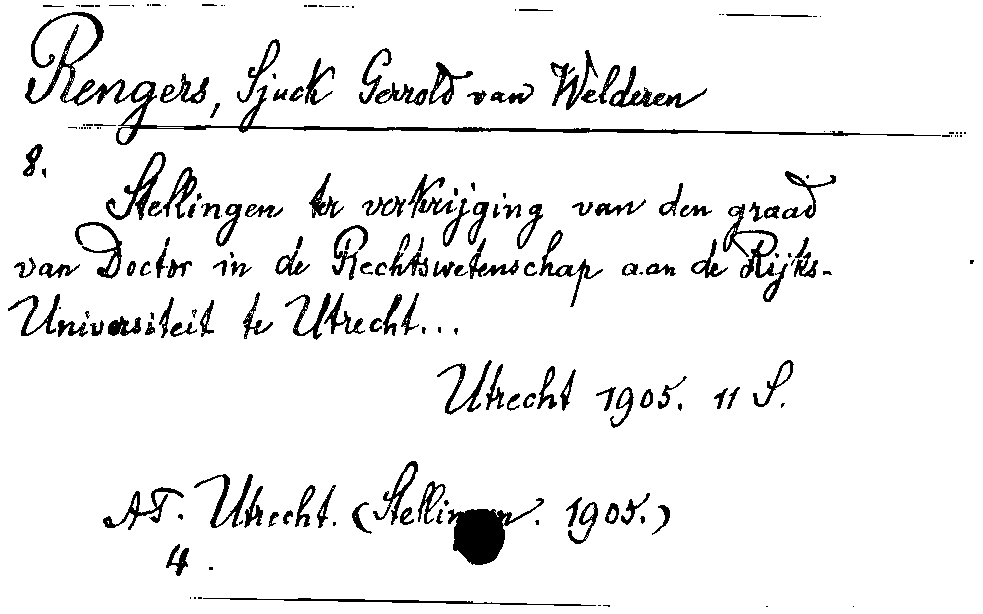 Rengers, Sjuck Gerrold van Welderen
8.
Stellingen ter verkrijging van den graad
van Doctor in de Rechtswetenschap aan de Rijks-
Universiteit te Utrecht...
Utrecht 1905. 11 S.
AT. Utrecht. (Stellingen. 1905.)
4.